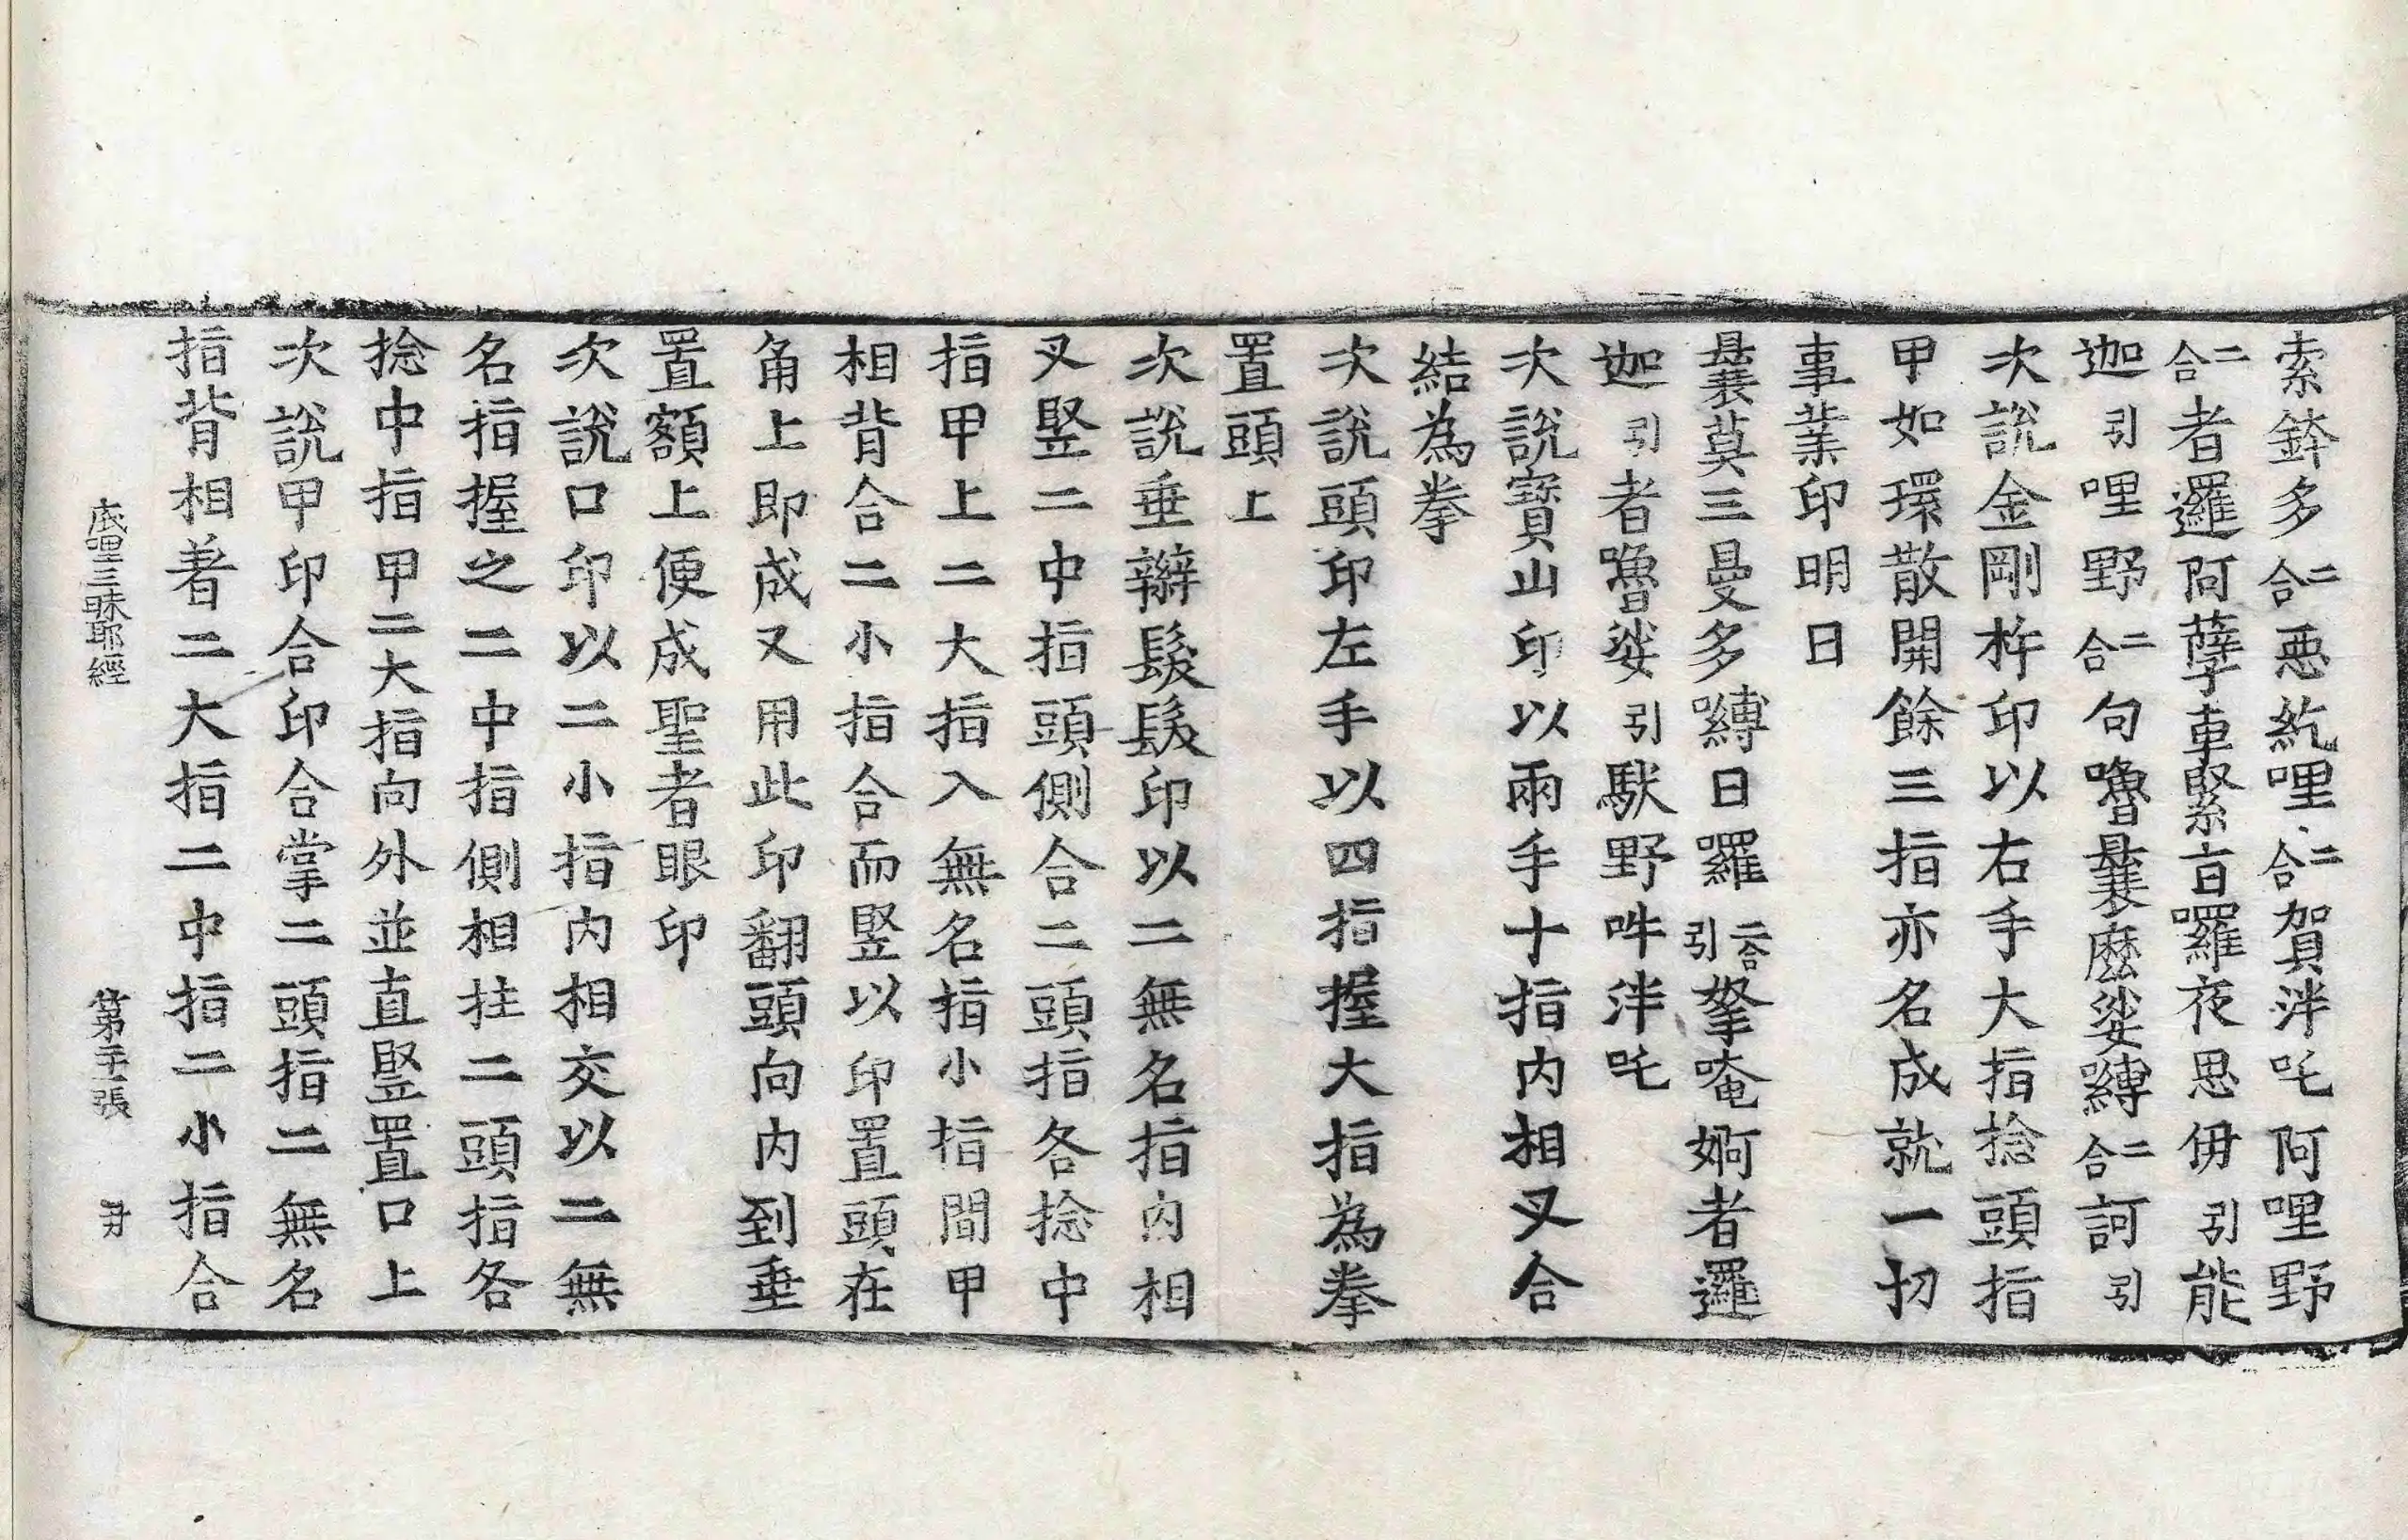 索鉢多二合惡紇哩二合賀泮吒阿哩野
二合者邏阿孽車緊旨囉夜思毋引能
迦引哩野二合句嚕曩麼娑嚩二合訶引
次說金剛杵印以右手大指捻頭指
甲如環散開餘三指亦名成就一切
事業印明曰
曩莫三曼多嚩日囉二合引拏唵婀者邏
迦引者嚕娑引馱野吽泮吒
次說寶山印以兩手十指内相叉合
結為拳
次說頭印左手以四指握大指為拳
置頭上
次說垂辮髮髮印以二無名指内相
叉竪二中指頭側合二頭指各捻中
指甲上二大指入無名指小指間甲
相背合二小指合而竪以印置頭在
角上即成又用此印翻頭向内到垂
置額上便成聖者眼印
次說口印以二小指内相交以二無
名指握之二中指側相拄二頭指各
捻中指甲二大指向外並直竪置口上
次說甲印合印合掌二頭指二無名
指背相著二大指二中指二小指合
底哩三昧耶經　第二十一張